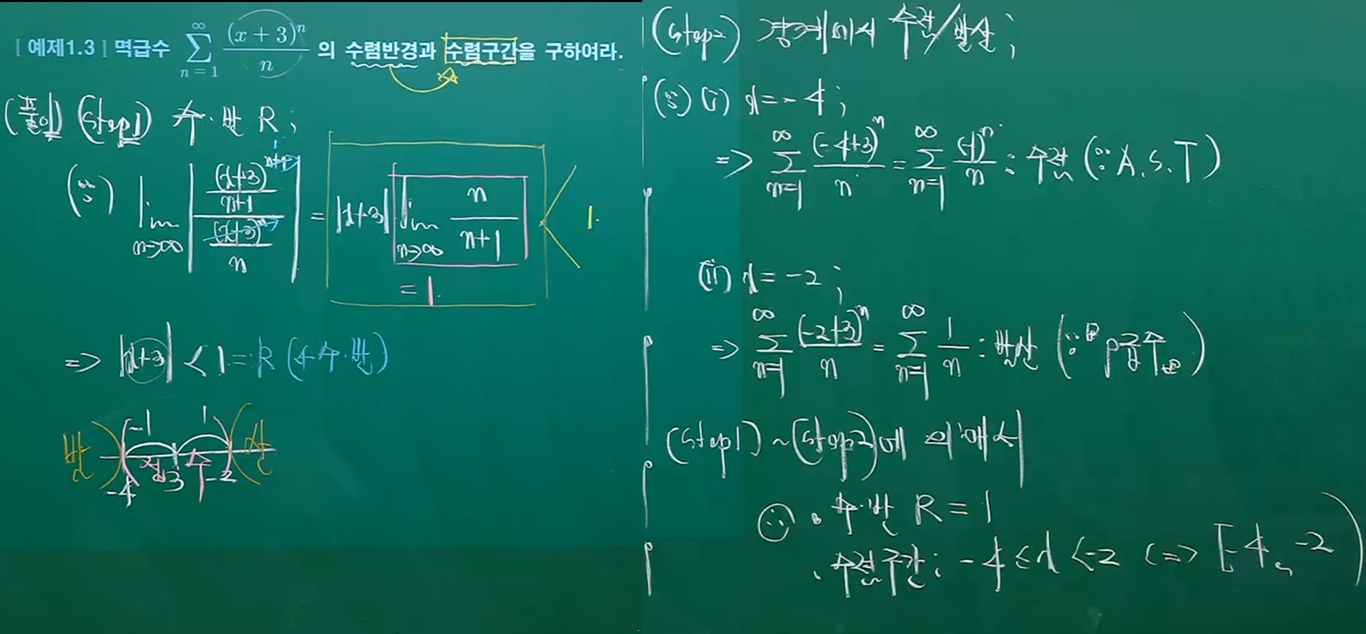 [ 예제1.3 ] 멱급수 \sum_{n=1}^{\infty} \frac{(x+3)^n}{n} 의 수렴반경과 수렴구간을 구하여라.
(풀이) (Step1) 수·반 R ;
(∵) \lim_{n→∞} \left| \frac{\frac{(x+3)^{n+1}}{n+1}}{\frac{(x+3)^n}{n}} \right| = |x+3| \lim_{n→∞} \frac{n}{n+1} < 1
= 1
=> |x+3| < 1 = R (수·반)
-1 1
발 수 산
-4 -3 -2
(Step2) 경계에서 수렴/발산 ;
(∵) (i) x = -4 ;
=> \sum_{n=1}^{∞} \frac{(-4+3)^n}{n} = \sum_{n=1}^{∞} \frac{(-1)^n}{n} : 수렴 (∵ A.S.T)
(ii) x = -2 ;
=> \sum_{n=1}^{∞} \frac{(-2+3)^n}{n} = \sum_{n=1}^{∞} \frac{1}{n} : 발산 (∵ p급수)
(Step1) ~ (Step2)에 의해서
· 수·반 R = 1
· 수렴구간 : -4 ≤ x < -2 <=> [-4, -2)